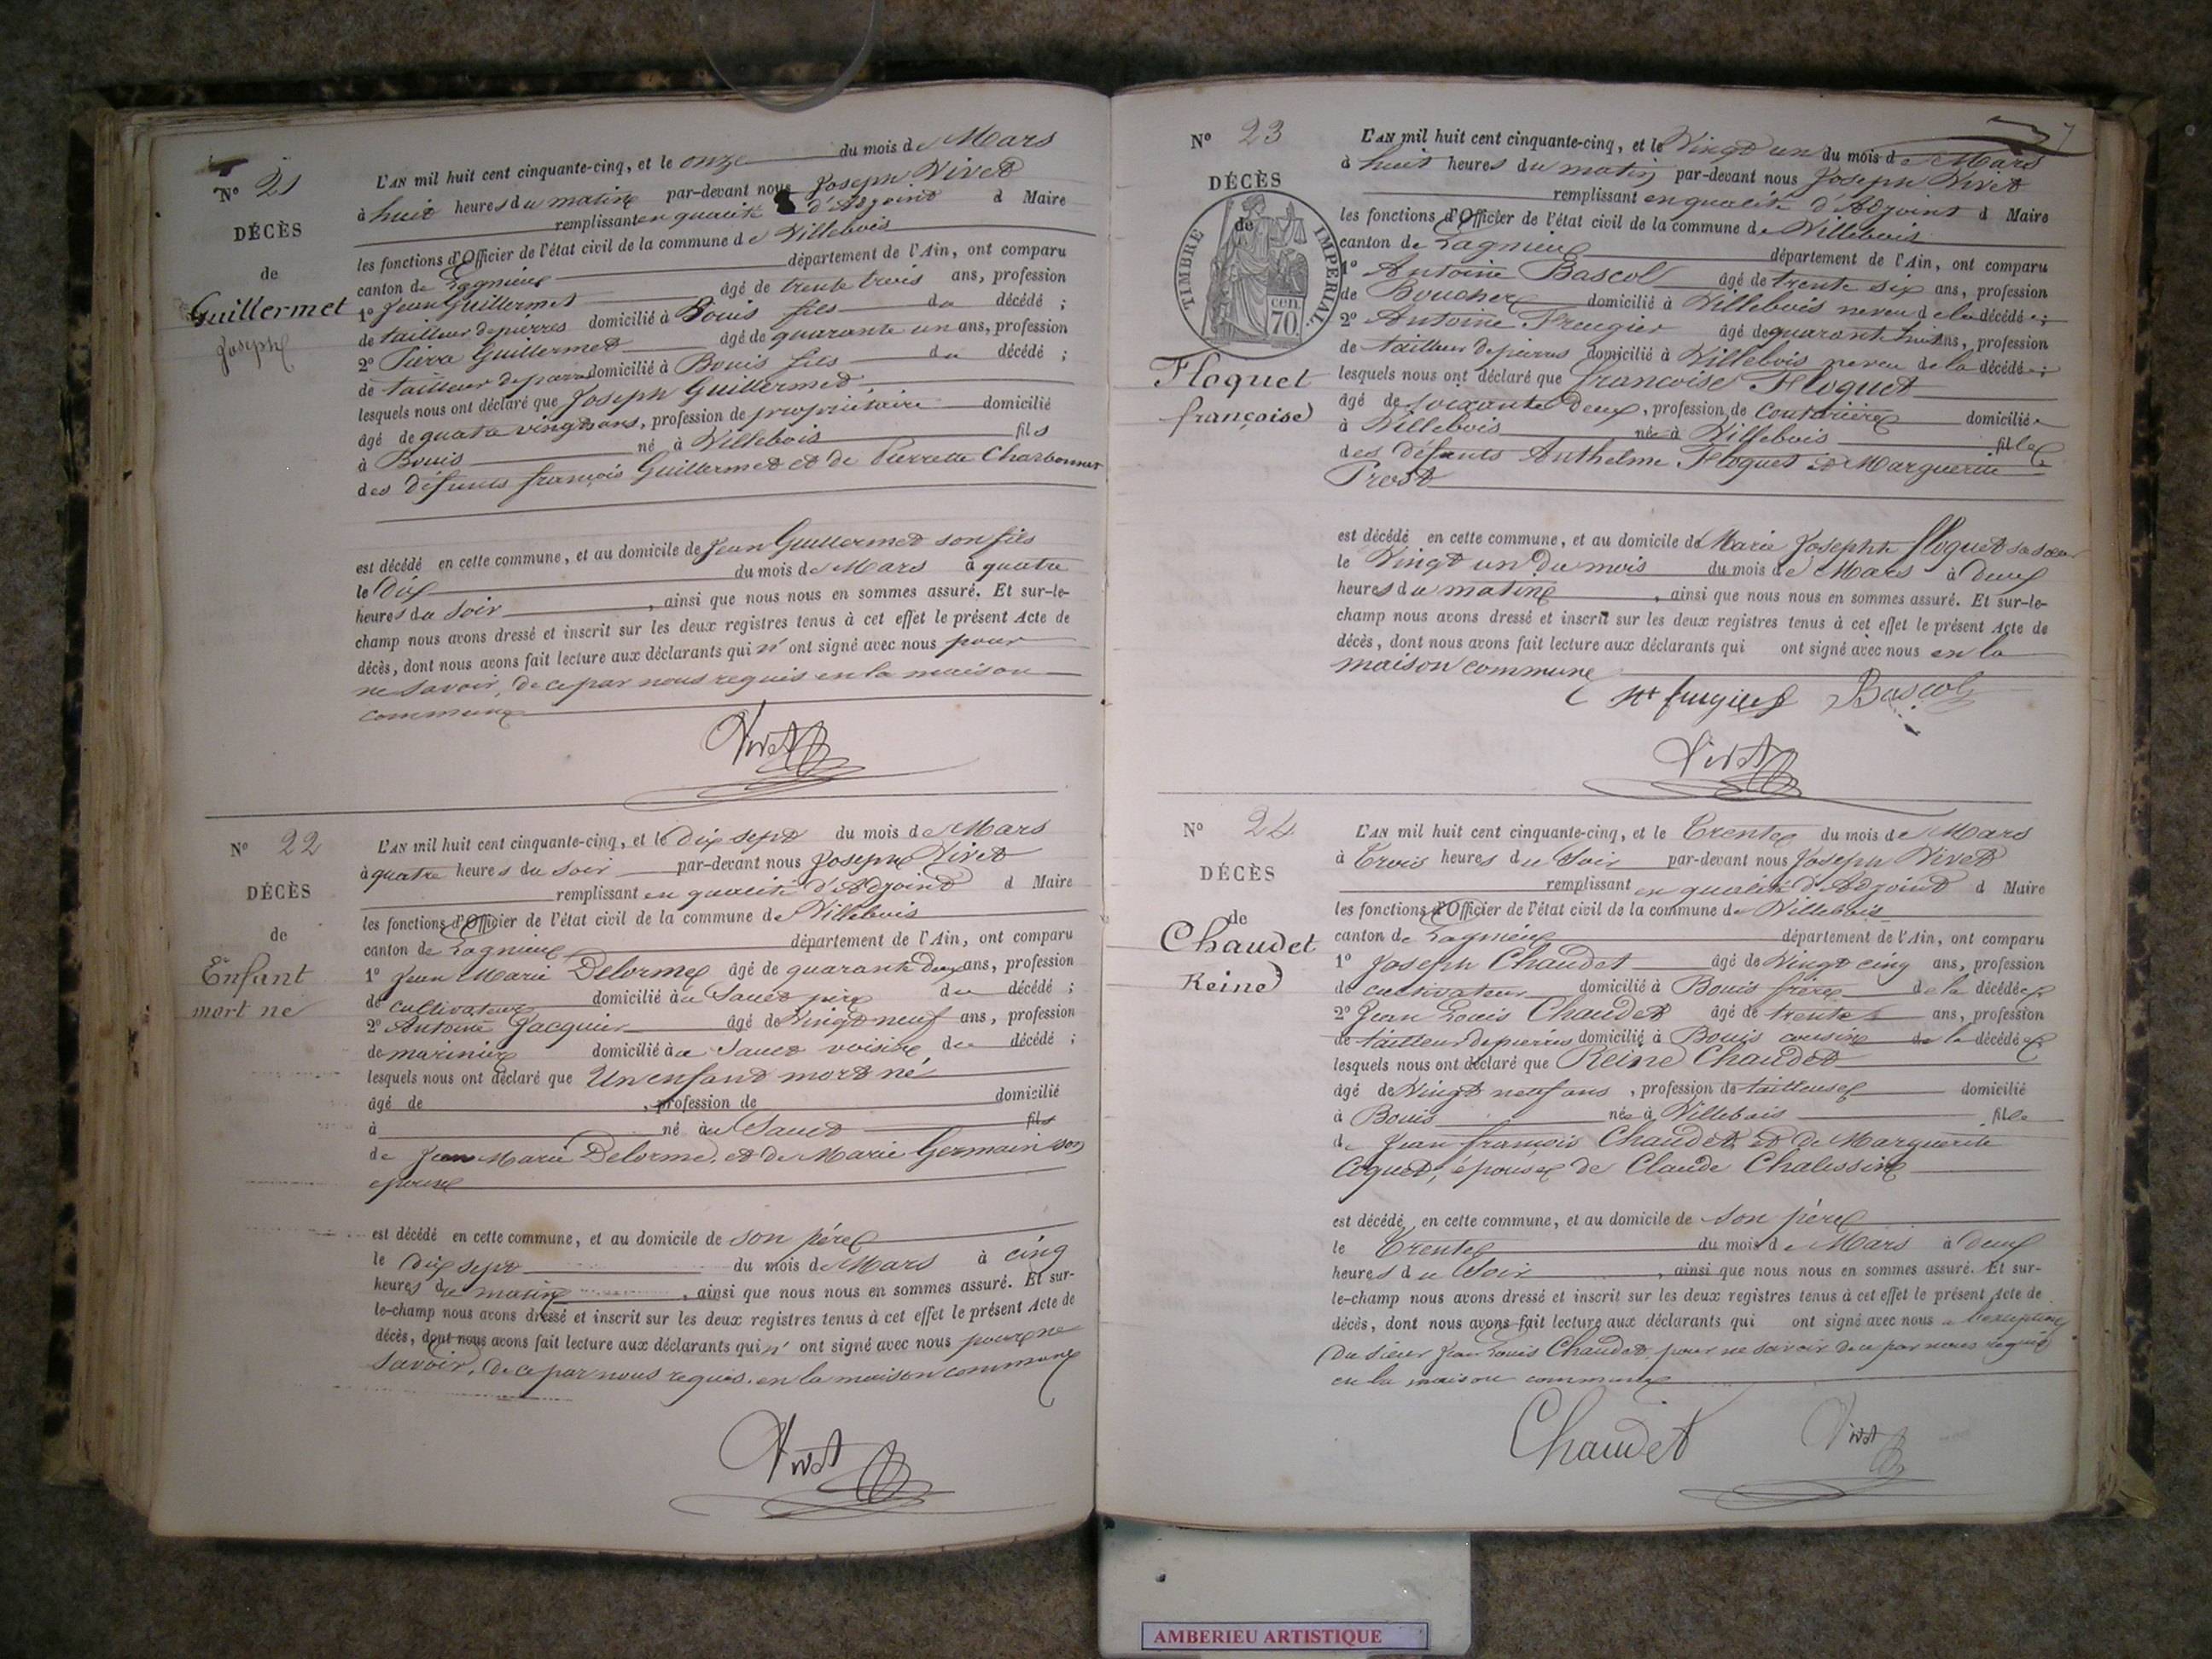 N° 21
DÉCÈS
de
Guillermet
Joseph
L'AN mil huit cent cinquante-cinq, et le onze du mois de Mars
à huit heures du matin par-devant nous Joseph Vivet
remplissant en qualité d'Adjoint d Maire
les fonctions d'Officier de l'état civil de la commune de Villebois
canton de Lagnieu département de l'Ain, ont comparu
1° Jean Guillermet âgé de trente trois ans, profession
de tailleur de pierres domicilié à Bouis fils du décédé ;
2° Pierre Guillermet âgé de quarante un ans, profession
de tailleur de pierres domicilié à Bouis fils du décédé ;
lesquels nous ont déclaré que Joseph Guillermet
âgé de quatre vingts ans, profession de propriétaire domicilié
à Bouis né à Villebois fils
des défunts françois Guillermet et de Pierrette Charbonnet
est décédé en cette commune, et au domicile de Jean Guillermet son fils
le Dix du mois de Mars à quatre
heures du Soir , ainsi que nous nous en sommes assuré. Et sur-le-
champ nous avons dressé et inscrit sur les deux registres tenus à cet effet le présent Acte de
décès, dont nous avons fait lecture aux déclarants qui n' ont signé avec nous pour
ne savoir, de ce par nous requis en la maison
commune
Vivet
N° 22
DÉCÈS
de
Enfant
mort né
L'AN mil huit cent cinquante-cinq, et le dix sept du mois de Mars
à quatre heures du Soir par-devant nous Joseph Vivet
remplissant en qualité d'Adjoint d Maire
les fonctions d'Officier de l'état civil de la commune de Villebois
canton de Lagnieu département de l'Ain, ont comparu
1° Jean Marie Delorme âgé de quarante deux ans, profession
de cultivateur domicilié au Sault père du décédé ;
2° Antoine Jacquier âgé de Vingt neuf ans, profession
de marinier domicilié au Sault voisin du décédé ;
lesquels nous ont déclaré que Un enfant mort né
âgé de , profession de domicilié
à né au Sault fils
de Jean Marie Delorme, et de Marie Germain son
épouse
est décédé en cette commune, et au domicile de son père
le Dix sept du mois de Mars à cinq
heures de matin , ainsi que nous nous en sommes assuré. Et sur-
le-champ nous avons dressé et inscrit sur les deux registres tenus à cet effet le présent Acte de
décès, dont nous avons fait lecture aux déclarants qui n' ont signé avec nous pour ne
savoir, de ce par nous requis. en la maison commune
Vivet
7
N° 23
DÉCÈS
de
TIMBRE IMPÉRIAL
70 cen
Floquet
françoise
L'AN mil huit cent cinquante-cinq, et le Vingt un du mois de Mars
à huit heures du matin par-devant nous Joseph Vivet
remplissant en qualité d'Adjoint d Maire
les fonctions d'Officier de l'état civil de la commune de Villebois
canton de Lagnieu département de l'Ain, ont comparu
1° Antoine Bascol âgé de trente six ans, profession
de Boucher domicilié à Villebois neveu de la décédée ;
2° Antoine Freugier âgé de quarante huit ans, profession
de tailleur de pierres domicilié à Villebois neveu de la décédée ;
lesquels nous ont déclaré que françoise Floquet
âgé de soixante deux, profession de Couturière domiciliée
à Villebois née à Villebois fille
des défunts Anthelme Floquet et Marguerite
Prost
est décédé en cette commune, et au domicile de Marie Josephte floquet sa soeur
le Vingt un du mois du mois de Mars à deux
heures du matin , ainsi que nous nous en sommes assuré. Et sur-le-
champ nous avons dressé et inscrit sur les deux registres tenus à cet effet le présent Acte de
décès, dont nous avons fait lecture aux déclarants qui ont signé avec nous en la
maison commune
Bascol
Vivet
N° 24
DÉCÈS
de
Chaudet
Reine
L'AN mil huit cent cinquante-cinq, et le Trente du mois de Mars
à Trois heures du Soir par-devant nous Joseph Vivet
remplissant en qualité d'Adjoint d Maire
les fonctions d'Officier de l'état civil de la commune de Villebois
canton de Lagnieu département de l'Ain, ont comparu
1° Joseph Chaudet âgé de Vingt cinq ans, profession
de cultivateur domicilié à Bouis frère de la décédée
2° Jean Louis Chaudet âgé de trente ans, profession
de tailleur de pierres domicilié à Bouis cousin de la décédée
lesquels nous ont déclaré que Reine Chaudet
âgé de Vingt neuf ans , profession de tailleuse domicilié
à Bouis née à Villebois fille
de Jean françois Chaudet et de Marguerite
Coquet, épouse de Claude Chalessin
est décédé en cette commune, et au domicile de son père
le Trente du mois de Mars à deux
heures du Soir , ainsi que nous nous en sommes assuré. Et sur-
le-champ nous avons dressé et inscrit sur les deux registres tenus à cet effet le présent Acte de
décès, dont nous avons fait lecture aux déclarants qui ont signé avec nous a l'exception
du sieur Jean Louis Chaudet pour ne savoir de ce par nous requis
en la maison commune
Chaudet Vivet
AMBERIEU ARTISTIQUE